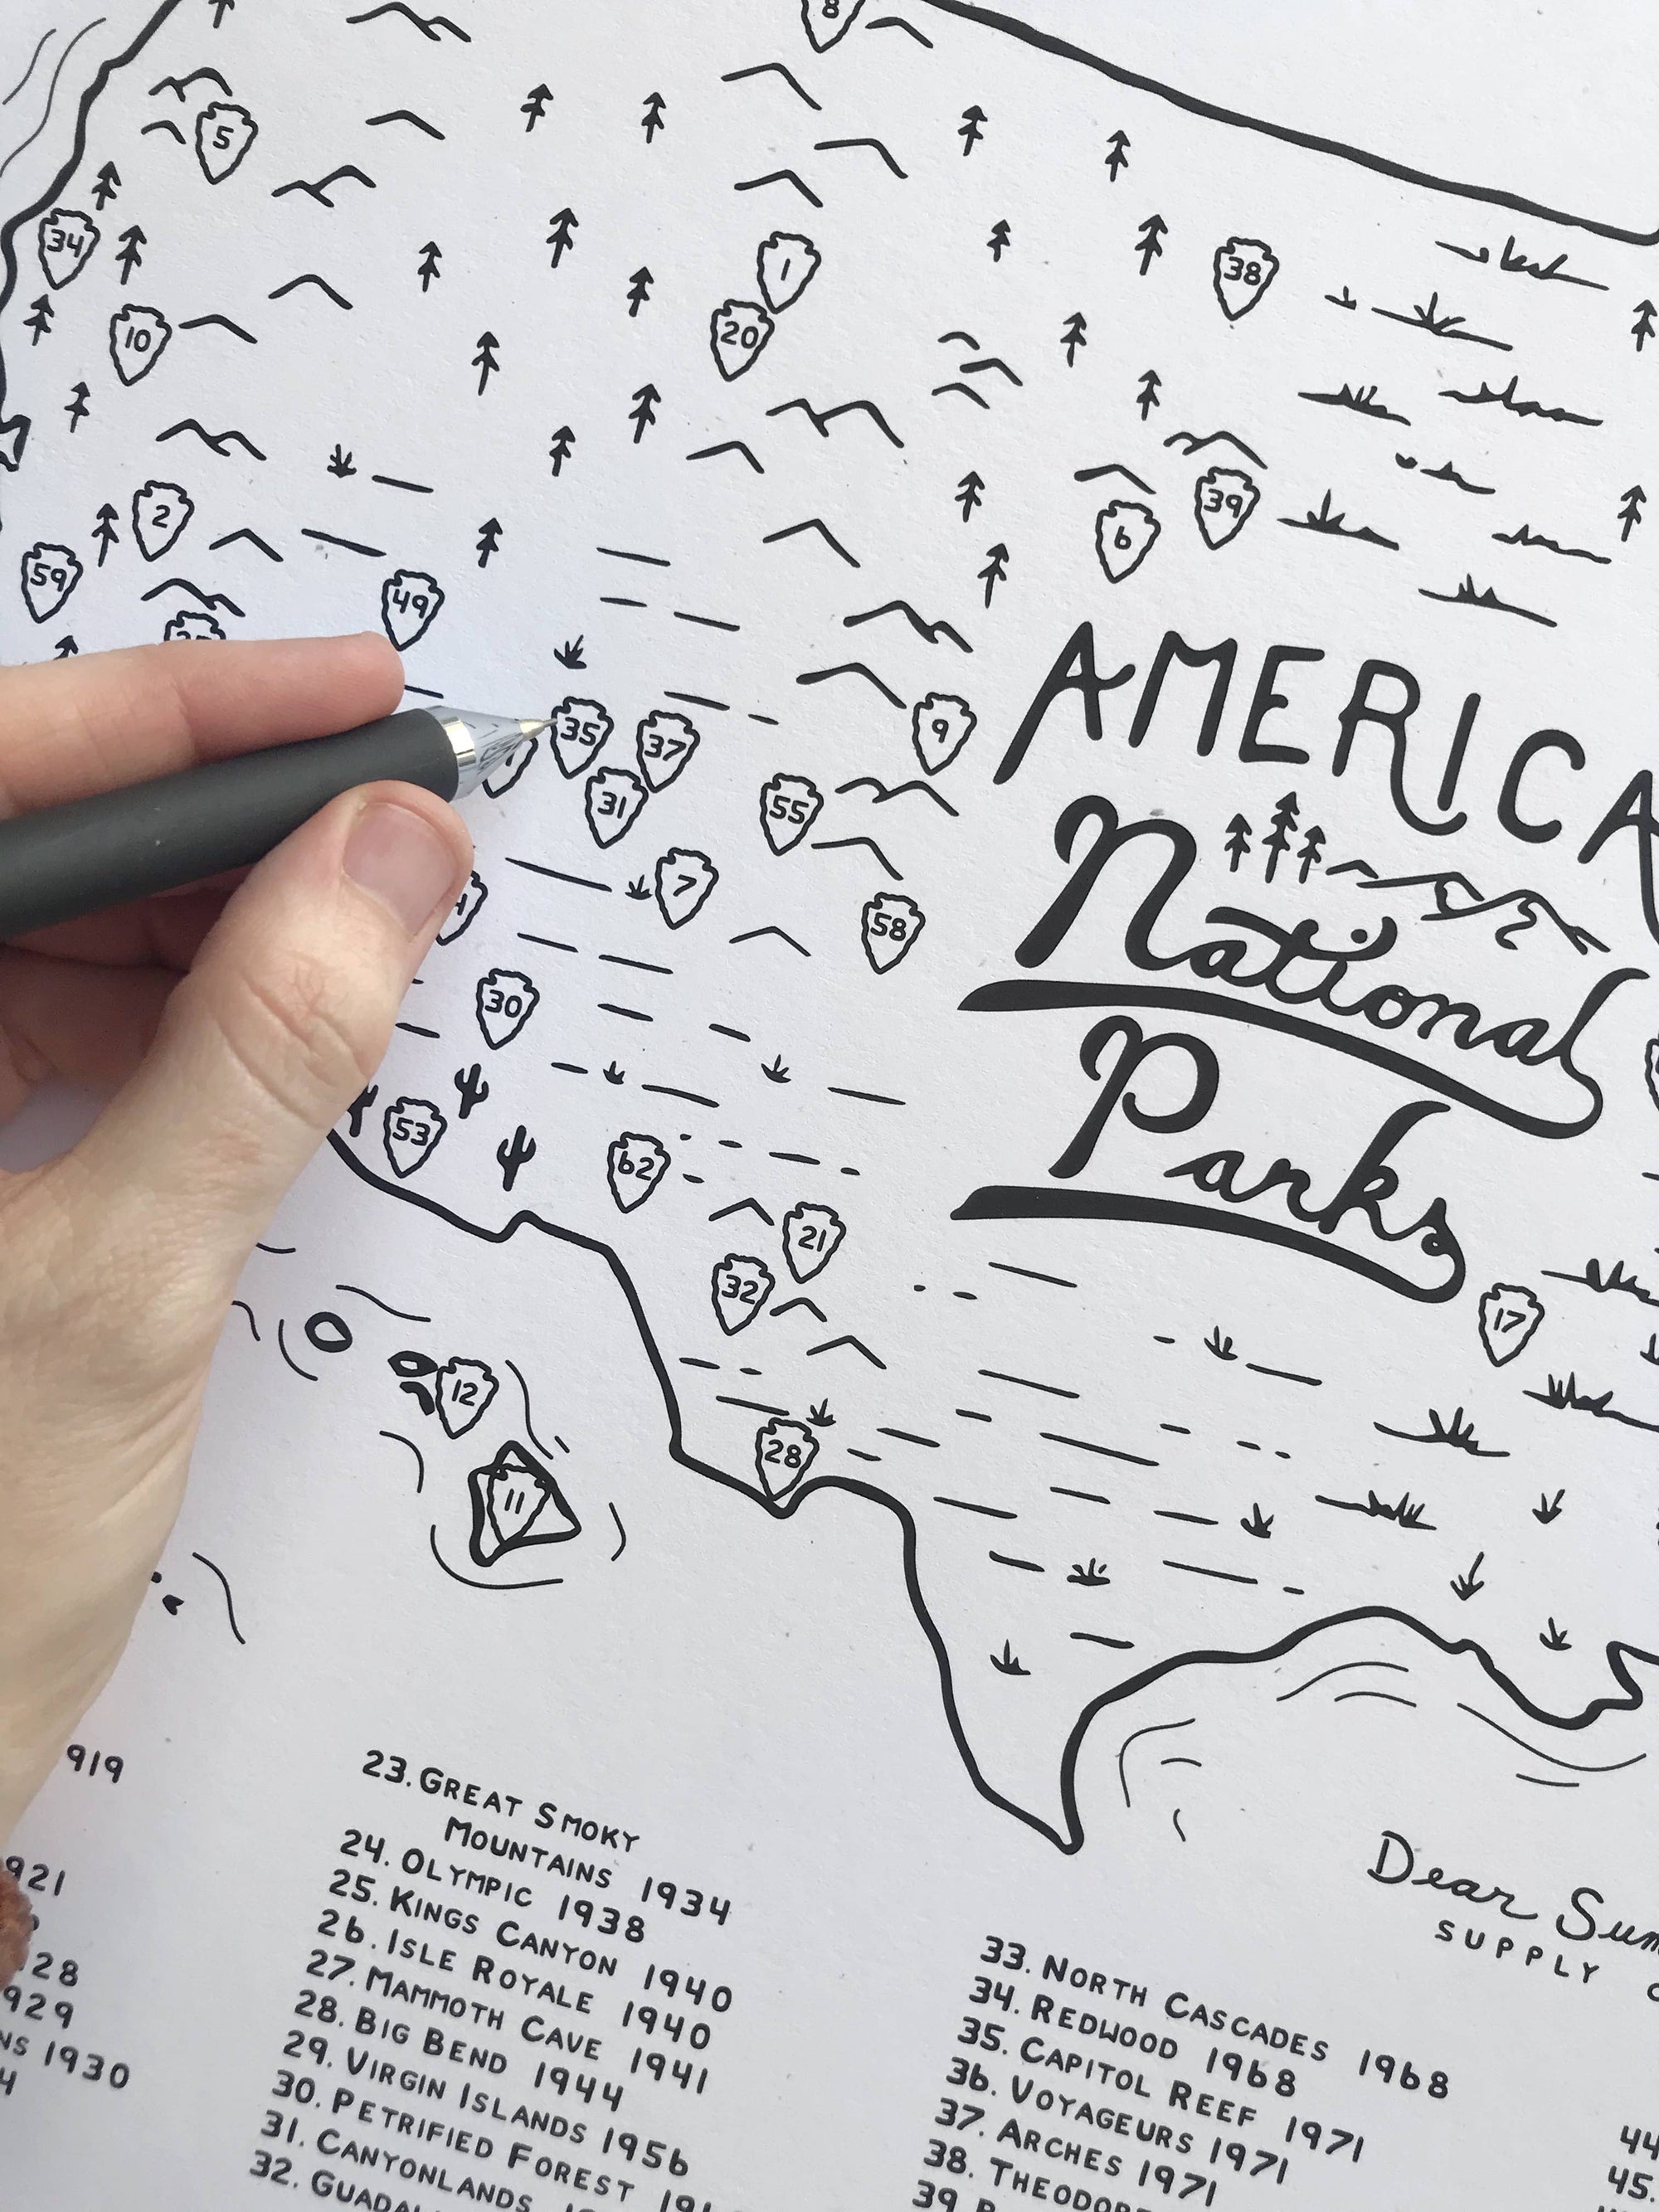 8
5
34
1
38
10
20
2
39
6
59
49
AMERICA
35
37
9
31
55
7
58
National
30
Parks
53
62
21
32
17
12
28
11
919
23. GREAT SMOKY
MOUNTAINS 1934
24. OLYMPIC 1938
25. KINGS CANYON 1940
26. ISLE ROYALE 1940
27. MAMMOTH CAVE 1941
28. BIG BEND 1944
29. VIRGIN ISLANDS 1956
30. PETRIFIED FOREST
31. CANYONLANDS
32.
921
28
929
1930
4
Dear
SUPPLY
33. NORTH CASCADES 1968
34. REDWOOD 1968
35. CAPITOL REEF 1971
36. VOYAGEURS 1971
37. ARCHES 1971
38.
39.
44
45.